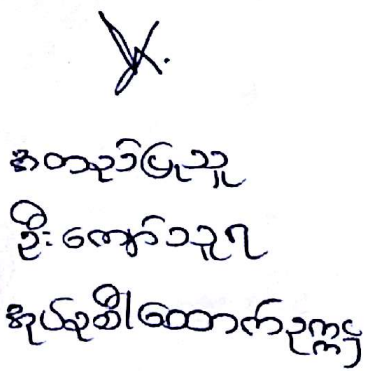 အတည်ပြုသူ
ဦးကျော်သူရ
အုပ်စု၆၊ထောက်ဥက္ကဋ္ဌ